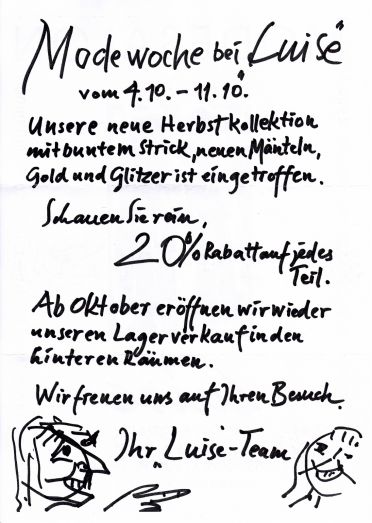 Modewoche bei „Luise"
vom 4.10. – 11.10.
Unsere neue Herbstkollektion
mit buntem Strick, neuen Mänteln,
Gold und Glitzer ist eingetroffen.
Schauen Sie rein,
20% Rabatt auf jedes
Teil.
Ab Oktober eröffnen wir wieder
unseren Lagerverkauf in den
hinteren Räumen.
Wir freuen uns auf Ihren Besuch.
Ihr „Luise"-Team